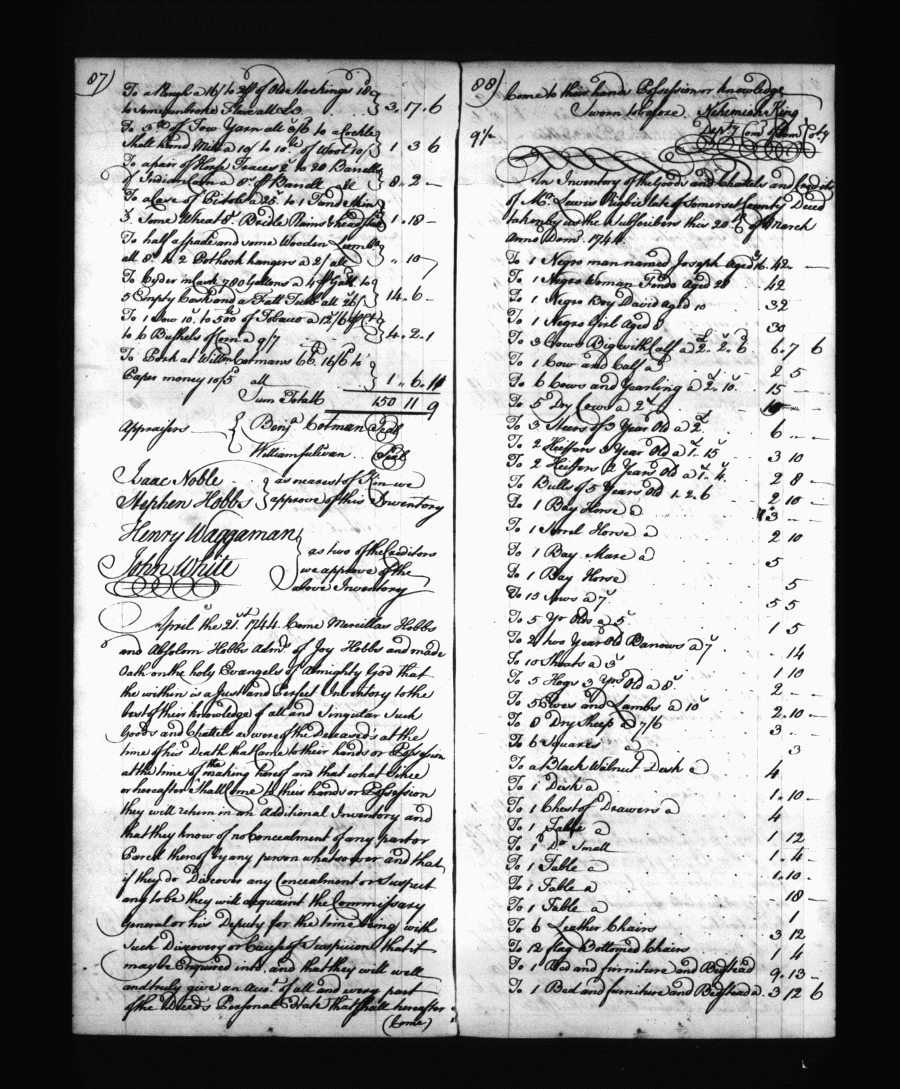 87)
To a Plough a 16/ to 2 pr of Old Stockings 18
to some unbroke Flax all &c } 3 . 17 . 6
To 3 of Tow Yarn all 3/6 to a Cockle
Shell hand Mill a 10/ to 10 of Wool 10/ } 1 3 6
To a pair of Horse Traces 2/ to 20 Barrells
of Indian Corn a 8/ Barell all } 8 .. 2 —
To a Case of Pistols a 25 to 1 Tand Skin
& Some Wheat 8 Bridle Rains & headstall } 1 .. 18 —
To half a spade and some Wooden
all 8 to 2 Pothook hangers a 2/ all } .. 10 —
To Cyder in Cask 780 Gallons a 4 Gall. to
5 Empty Cask and a Fatt Tubb all 26/ } 14 .. 6 —
To 1 Sow 10 to 500 of Tobacco a 12/6
to 6 Bushels of Corn a 9/7 } 4 .. 2 .. 1
To Pork at Willm Cotmans 66 16/6 to
Paper money 10/5 all } 1 .. 6 .. 11
Sum Totall 150 11 9
Appraisers { Benja Cotman Seal
William Sulivan . Seal
Isaac Noble
Stephen Hobbs } as nearest of Kin we approve of this Inventory
Henry Waggaman
John White } as two of the Creditors we approve of the above Inventory
April the 21st 1744 Came Mercillas Hobbs
and Absolom Hobbs Admrs of Joy Hobbs and made
Oath on the holy Evangels of Almighty God that
the within is a Just and Perfect Inventory to the
best of their knowledge of all and Singular Such
Goods and Chatels as were of the Deceased's at the
time of his Death that Came to their hands or Possession
at the time of the making hereof and that what Since
or hereafter Shall Come to their hands or Possession
they will return in an Additional Inventory and
that they know of no Concealment of any part or
Parcel thereof by any person whatsoever and that
if they do Discover any Concealment or Suspect
any to be they will acquaint the Commissary
General or his Deputy for the time being with
Such Discovery or Cause of Suspicion that it
may be Enquired into and that they will well
and truly give an Acct of all and every part
of the Deceds Personal Estate that Shall hereafter
(Come)
88)
Come to their hands Possession or knowledge
Sworn before Nehemiah King
Depty Com of Som Coty
An Inventory of the Goods and Chatels and Credits
of Mr. Lewis Rigbie late of Somerset County Deced
taken by us the Subscribers this 20th of March
Anno Domi 1744.
To 1 Negro man named Joseph Aged 16 . 42 .. —
To 1 Negro Woman Fendo Aged 20 42
To 1 Negro Boy David aged 10 32
To 1 Negro Girl Aged 8 30
To 3 Cows Big with Calf a 2 .. 2 .. 6 6 .. 7 6
To 1 Cow and Calf a 2 5
To 6 Cows and Yearling a 2 .. 10 15 —
To 5 Dry Cows a 2 10
To 3 Steers of 3 Year Old a 2 6 .. —
To 2 Heiffers 3 Year Old a 1 .. 15 3 10
To 2 Heiffers 2 Years Old a 1 .. 4 2 8 —
To Bulls of 5 Years Old 1 . 2 . 6 2 .. 10 —
To 1 Bay Horse a 3 .. —
To 1 Sorrel Horse a 2 10
To 1 Bay Mare a 5
To 1 Bay Horse 5
To 15 Sows a 7 5 5
To 5 Yr Olds a 5 1 5
To 2 two Year Old Barrows a 7 . 14
To 10 Shoats a 3 1 10
To 5 Hogs 3 Yrs Old a 8 2 .. —
To 5 Ewes and Lambs a 10 2 .. 10 —
To 8 Dry Sheep a 7/6 3 . —
To 6 Squares a 3
To a Black Walnut Desk a 4
To 1 Desk a 1 .. 10 —
To 1 Chest of Drawers a 4
To 1 Table a 1 12
To 1 Do Small 1 .. 4 —
To 1 Table a 1 .. 10 .
To 1 Table a 18 —
To 1 Table a 1
To 6 Leather Chairs 3 12
To 12 flag Bottomed Chairs 1 4
To 1 Bed and furniture and Bedstead 9 .. 13 —
To 1 Bed and furniture and Bedstead a . 3 12 6